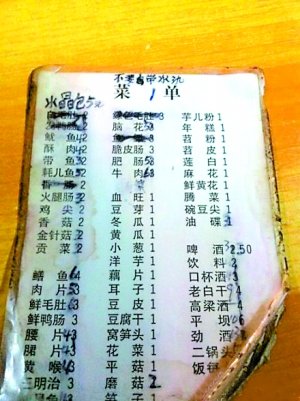 不要自带水酒
菜 1 单
水晶包5元
芋儿粉 1
鱿鱼 42 脑花 3 年糕 1
酥肉 42 脆皮肠 3 苕粉 1
带鱼 32 肥肠 53 苕皮 1
耗儿鱼 52 牛肉 63 莲白 1
麻花 1
火腿肠 2 血旺 1 鲜黄花 1
鸡尖 2 豆芽 1 腾菜 1
香菇 2 冬瓜 1 碗豆尖 1
金针菇 2 黄瓜 1 油碟 1
贡菜 2 小葱 1
洋芋 1 啤酒 2.50
藕片 1 饮料 2
鳝鱼 64 耳子 1 口杯酒 3
肉片 53 豆皮 1 老白干 4
鲜毛肚 3 豆腐干 1 高梁酒 4
鲜鸭肠 3 窝笋头 1 平坝
腰片 43 花菜 1 劲酒
腘片 43 平菇 1 二锅头
黄喉 43 磨菇 2 饭
三明治 3